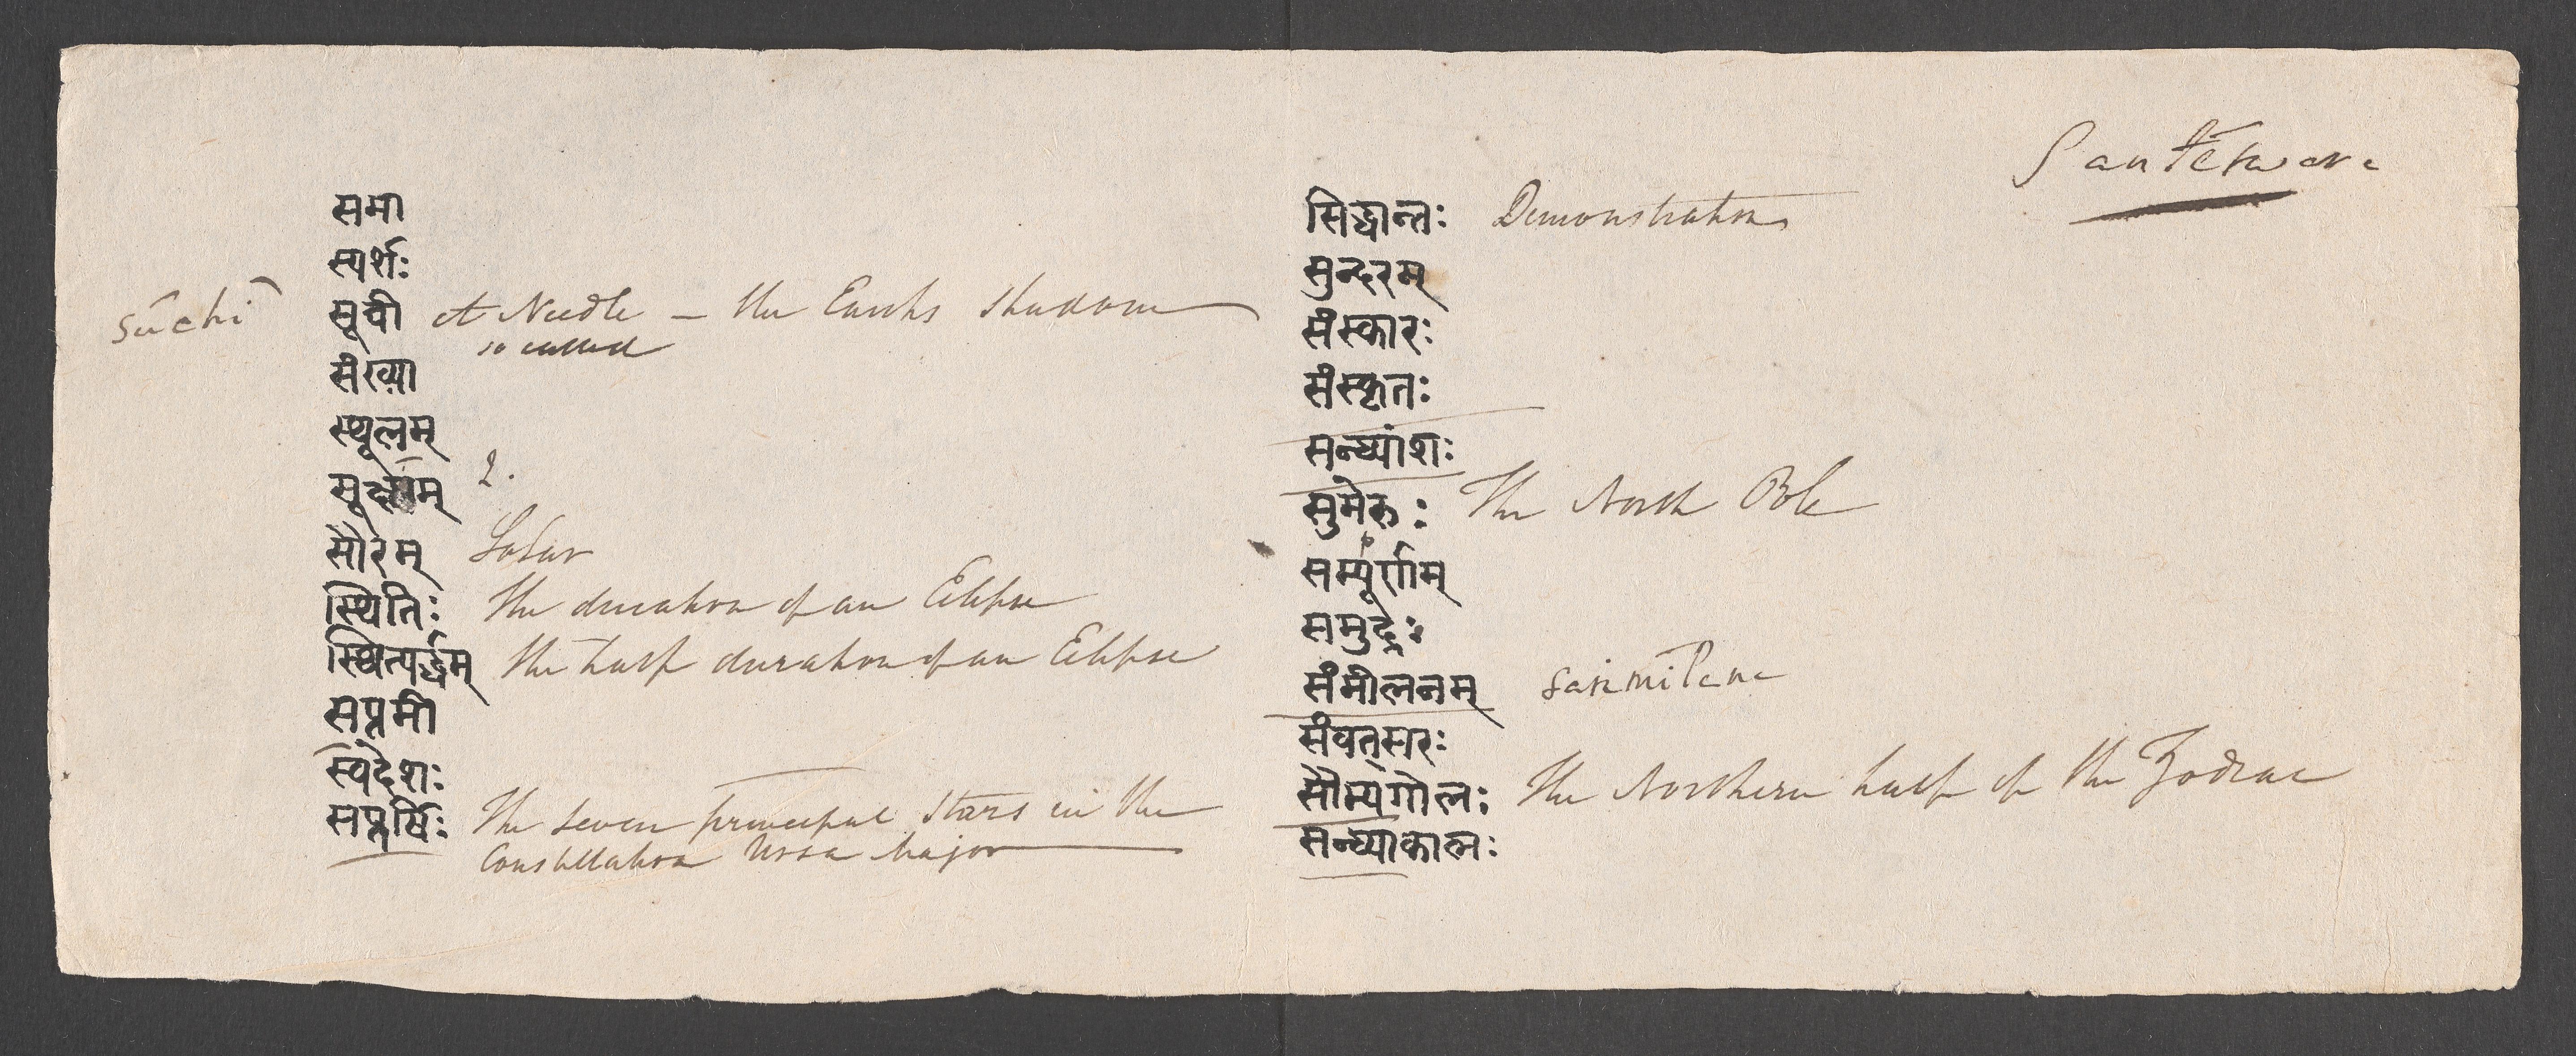 समा
स्पर्शः
sūchi सूची A Needle - the Earths shadow
so called
संख्या
स्थूलम्
सूक्ष्मम् 2.
सौरम् Solar
स्थितिः the duration of an Eclipse
स्थित्यर्द्धम् the half duration of an Eclipse
सप्तमी
स्वदेशः
सप्तर्षिः The seven principal Stars in the
Constellation Ursa Major
सिद्धान्तः Demonstration
सुन्दरम्
संस्कारः
संस्कृतः
सन्ध्यांशः
सुमेरुः The North Pole
सम्पूर्णम्
समुद्रः
संमीलनम् sanmilana
संवत्सरः
सौम्यगोलः The Northern half of the Zodiac
सन्ध्याकालः